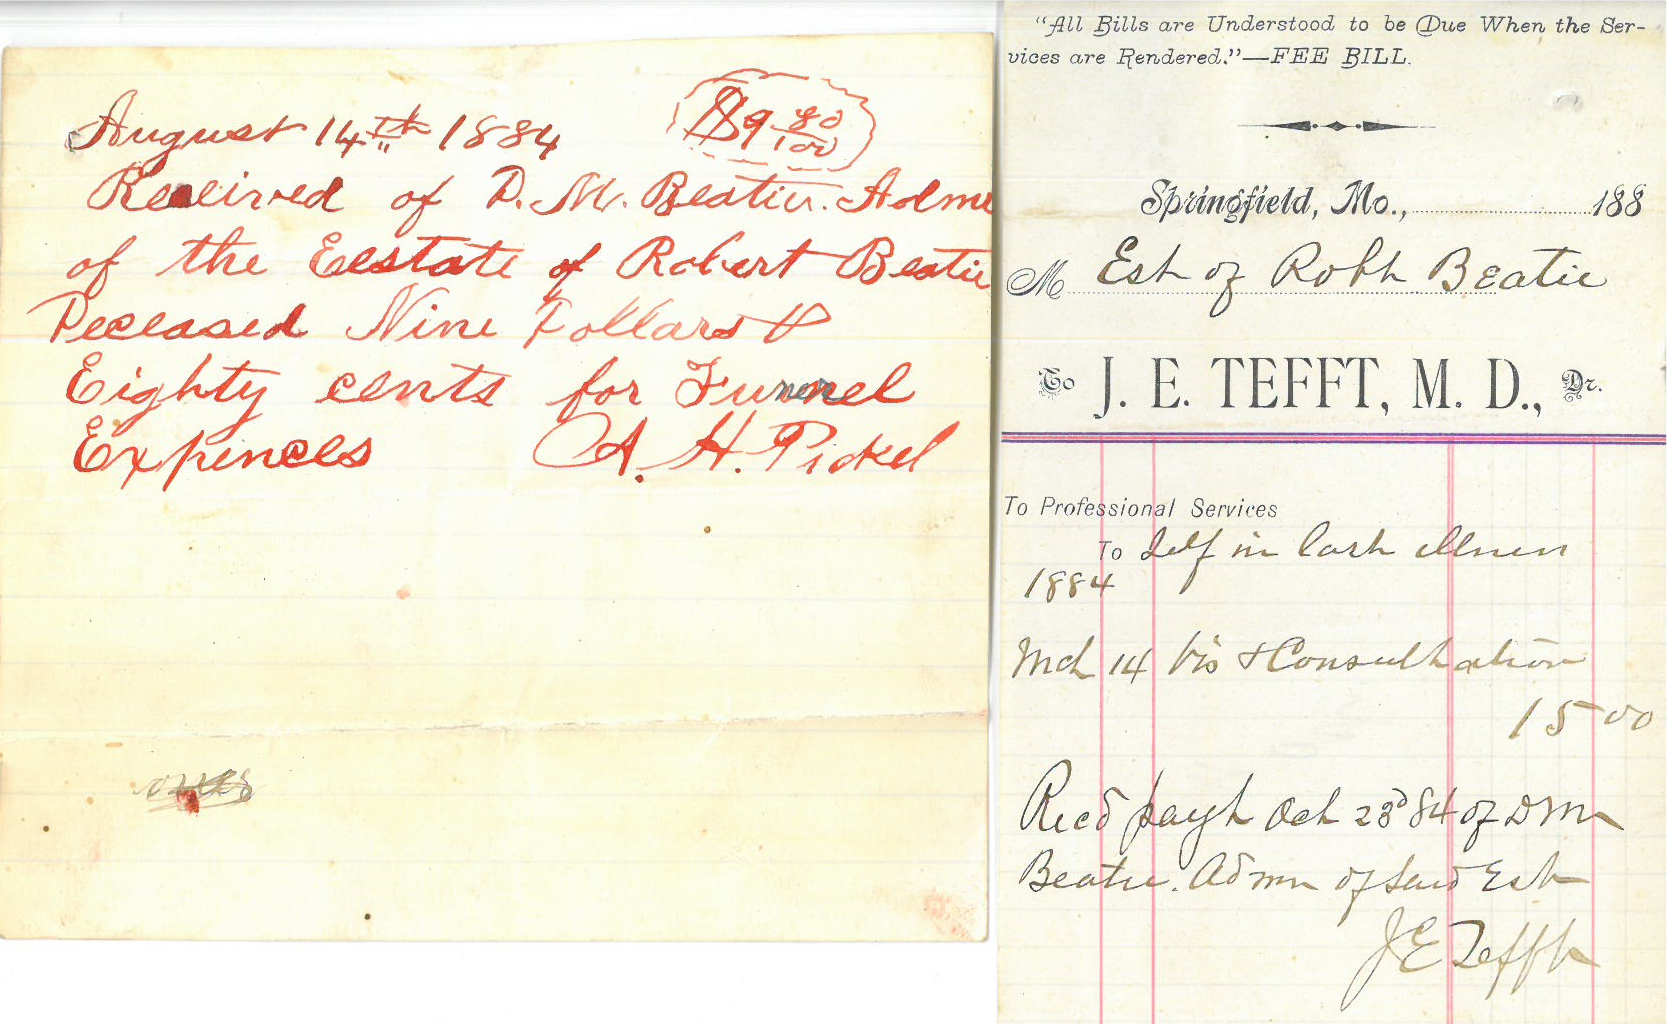 August 14th 1884 $9 80/100
Received of D. M. Beatie. Admr
of the Eestate of Robert Beatie
Deceased Nine Dollars &
Eighty cents for Funnel
Expences A. H. Pickel
"All Bills are Understood to be Due When the Ser-
vices are Rendered."—FEE BILL.
Springfield, Mo., 188
M Est of Robt Beatie
To J. E. TEFFT, M. D., Dr.
To Professional Services
To Self in last illness
1884
Mch 14 Vis & Consultation
15 00
Recd payt Oct 23d 84 of D M
Beatie. Admr of said Est
J E Tefft